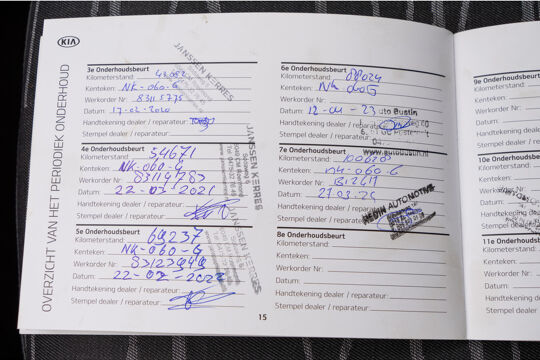 KIA
OVERZICHT VAN HET PERIODIEK ONDERHOUD
3e Onderhoudsbeurt
Kilometerstand: 43082
Kenteken: NK-060-G
Werkorder Nr: 83115775
Datum: 17-02-2020
Handtekening dealer / reparateur:
Stempel dealer / reparateur:
JANSSEN KERRES
4e Onderhoudsbeurt
Kilometerstand: 54671
Kenteken: NK-060-G
Werkorder Nr: 83119783
Datum: 22-03-2021
Handtekening dealer / reparateur:
Stempel dealer / reparateur:
JANSSEN KERRES
5e Onderhoudsbeurt
Kilometerstand: 69237
Kenteken: NK-060-G
Werkorder Nr: 83123949
Datum: 22-03-2022
Handtekening dealer / reparateur:
Stempel dealer / reparateur:
JANSSEN KERRES
6e Onderhoudsbeurt
Kilometerstand: 88024
Kenteken: NK 060G
Werkorder Nr:
Datum: 12-01-23
Handtekening dealer / reparateur:
Stempel dealer / reparateur:
7e Onderhoudsbeurt
Kilometerstand:
Kenteken: NK-060-G
Werkorder Nr:
Datum:
Handtekening dealer / reparateur:
Stempel dealer / reparateur:
AUTOMOTIVE
8e Onderhoudsbeurt
Kilometerstand:
Kenteken:
Werkorder Nr:
Datum:
Handtekening dealer / reparateur:
Stempel dealer / reparateur:
15
9e Onderhoudsbeurt
Kilometerstand:
Kenteken:
Werkorder Nr:
Datum:
Handtekening dealer
Stempel dealer / re
10e Onderhoudsbe
Kilometerstand:
Kenteken:
Datum:
Handtekening deale
Stempel dealer / re
11e Onderhoudsbe
Kilometerstand:
Kenteken:
Werkorder Nr:
Datum:
Handtekening
Stempel dealer